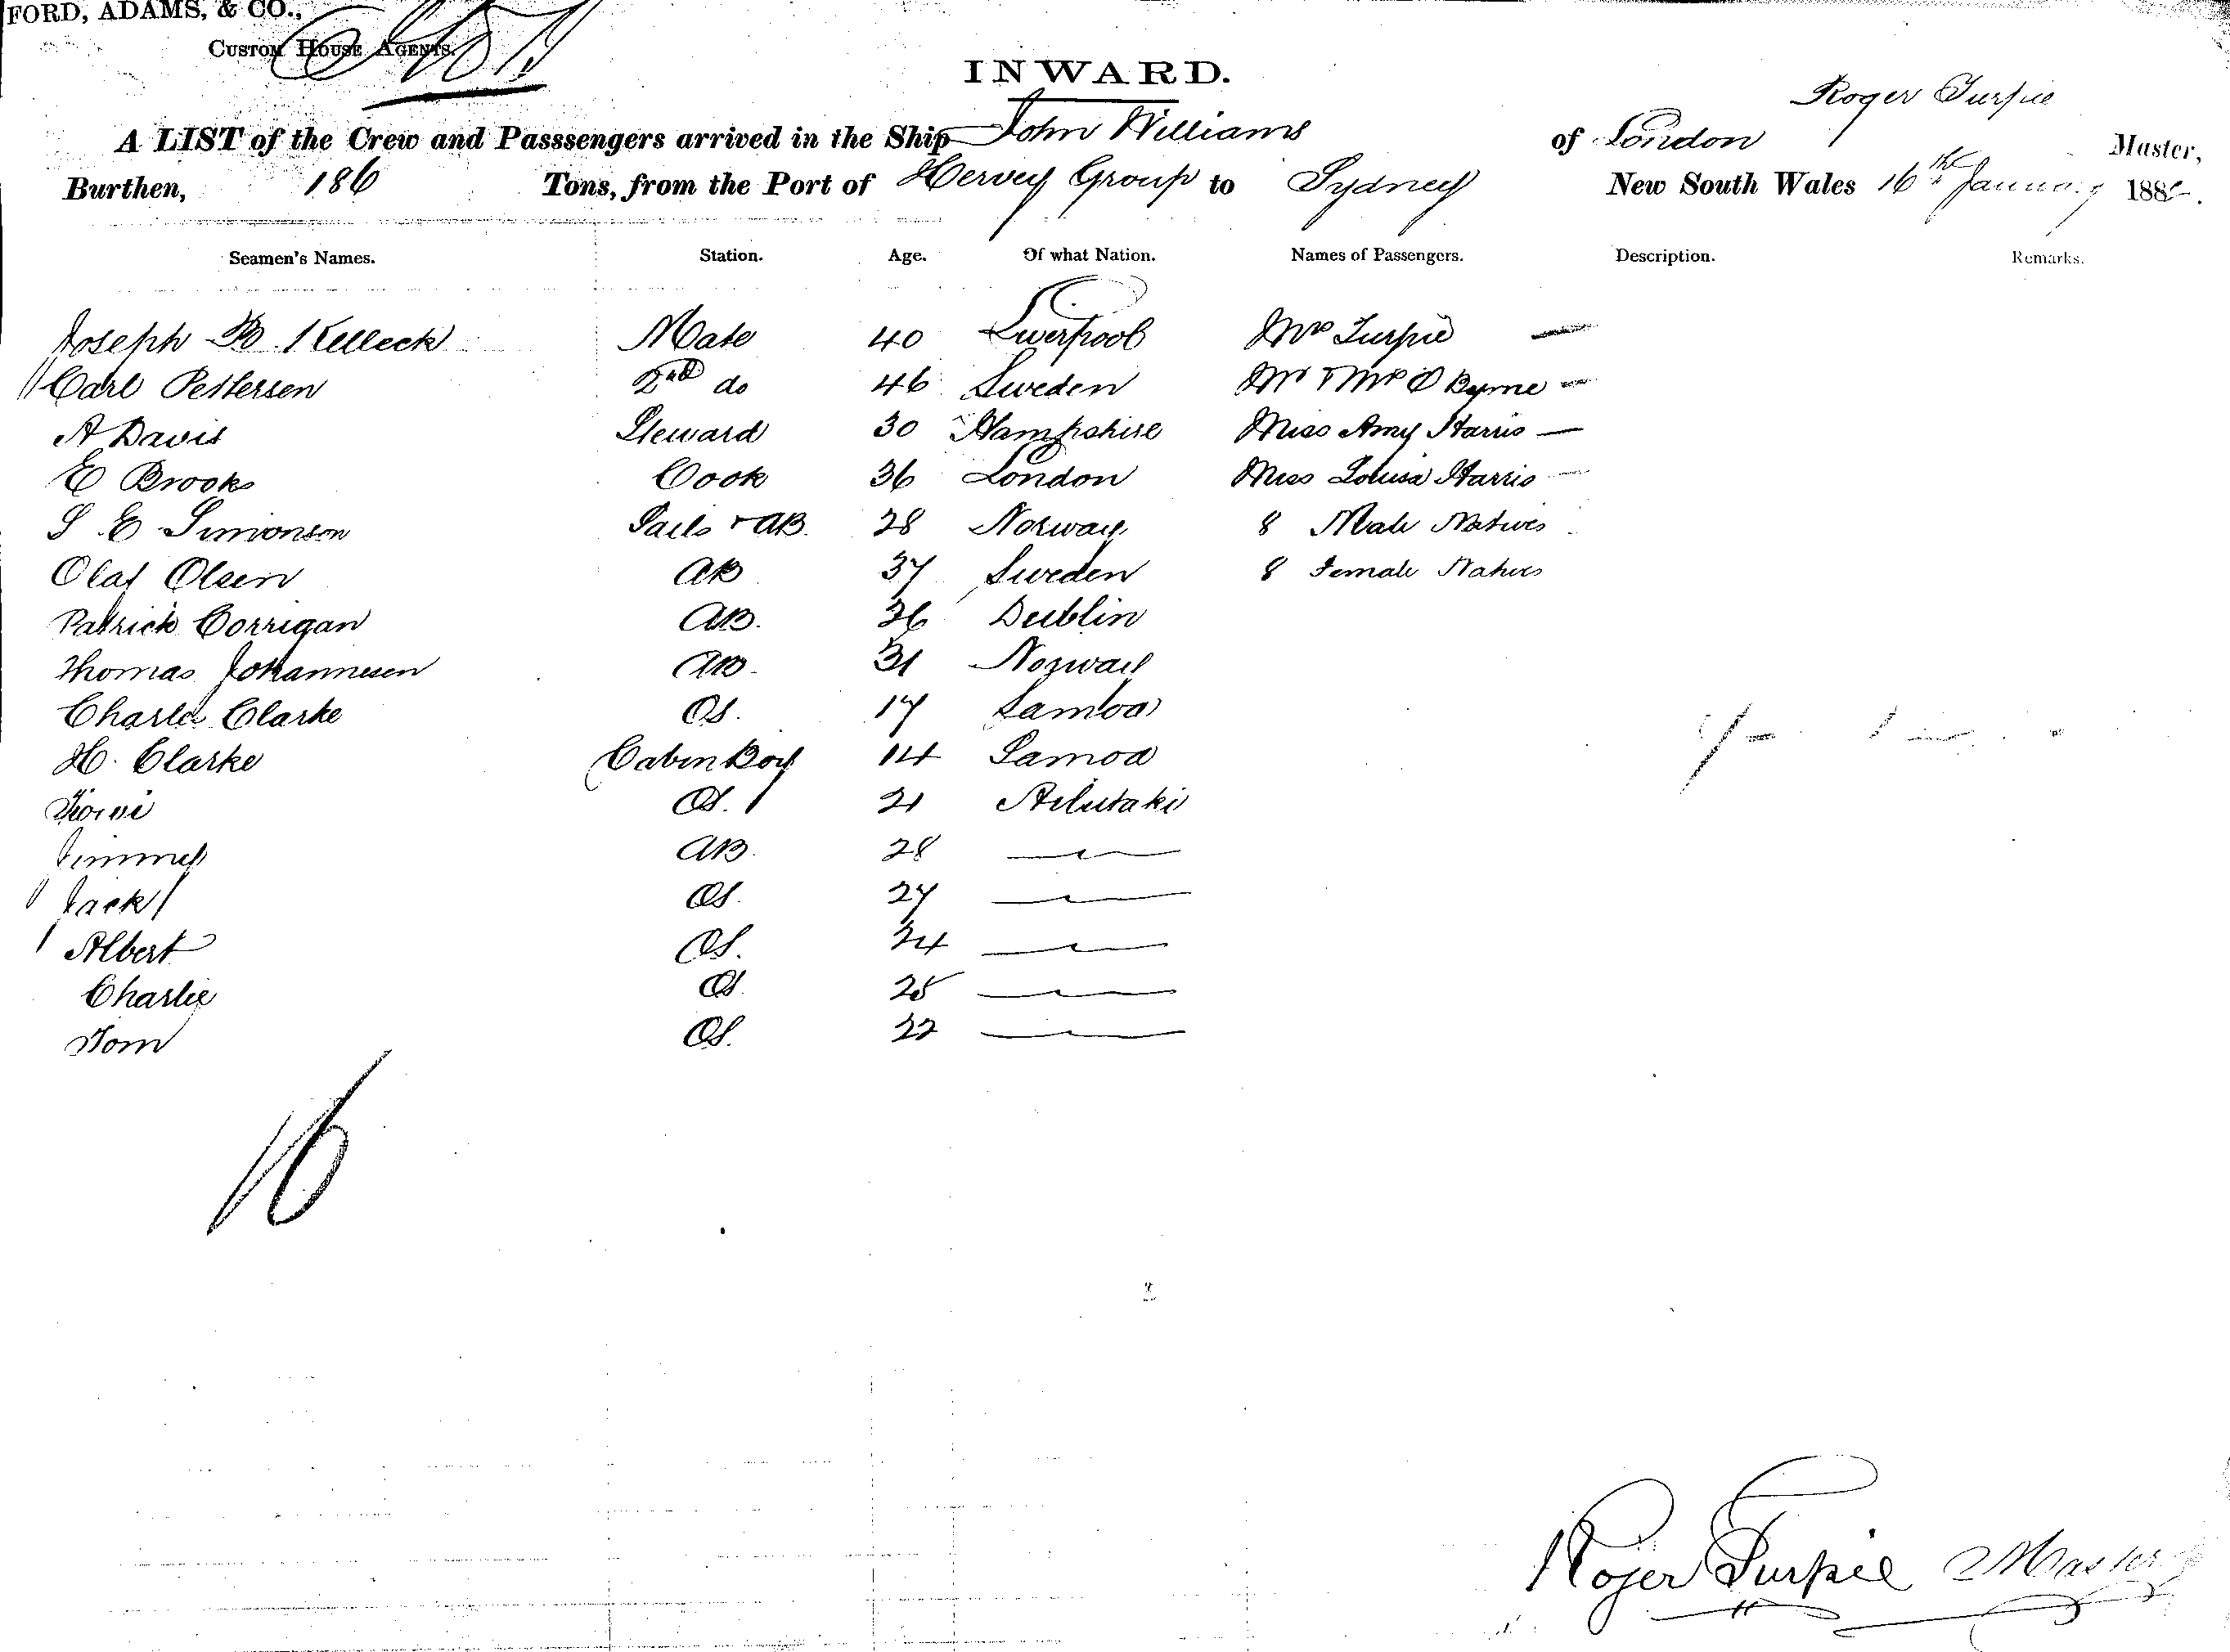 FORD, ADAMS, & CO.,
CUSTOM HOUSE AGENTS.
INWARD.
Roger Turpie
A LIST of the Crew and Passsengers arrived in the Ship John Williams of London Master,
Burthen, 186 Tons, from the Port of Hervey Group to Sydney New South Wales 16th January 188
Seamen's Names. Station. Age. Of what Nation. Names of Passengers. Description. Remarks.
Joseph Kelleck Mate 40 Liverpool Mrs Turpie —
Carl Pettersen 2nd do 46 Sweden Mr & Mrs O Byrne —
A Davis Steward 30 Hampshire Miss Amy Harris —
E Brooks Cook 36 London Miss Louisa Harris —
S E Simonsen Sails & AB. 28 Norway 8 Male Natives
Olaf Olsen AB 37 Sweden 8 Female Natives
Patrick Corrigan AB. 26 Dublin
Thomas Johannesen AB. 31 Norway
Charles Clarke OS. 17 Samoa
H. Clarke Cabin Boy 14 Samoa
OS. 21 Aitutaki
Jimmy AB. 28 —"—
Jack OS. 27 —"—
Albert OS. 24 —"—
Charlie OS. 25 —"—
Tom OS. 22 —"—
16
Roger Turpie Master